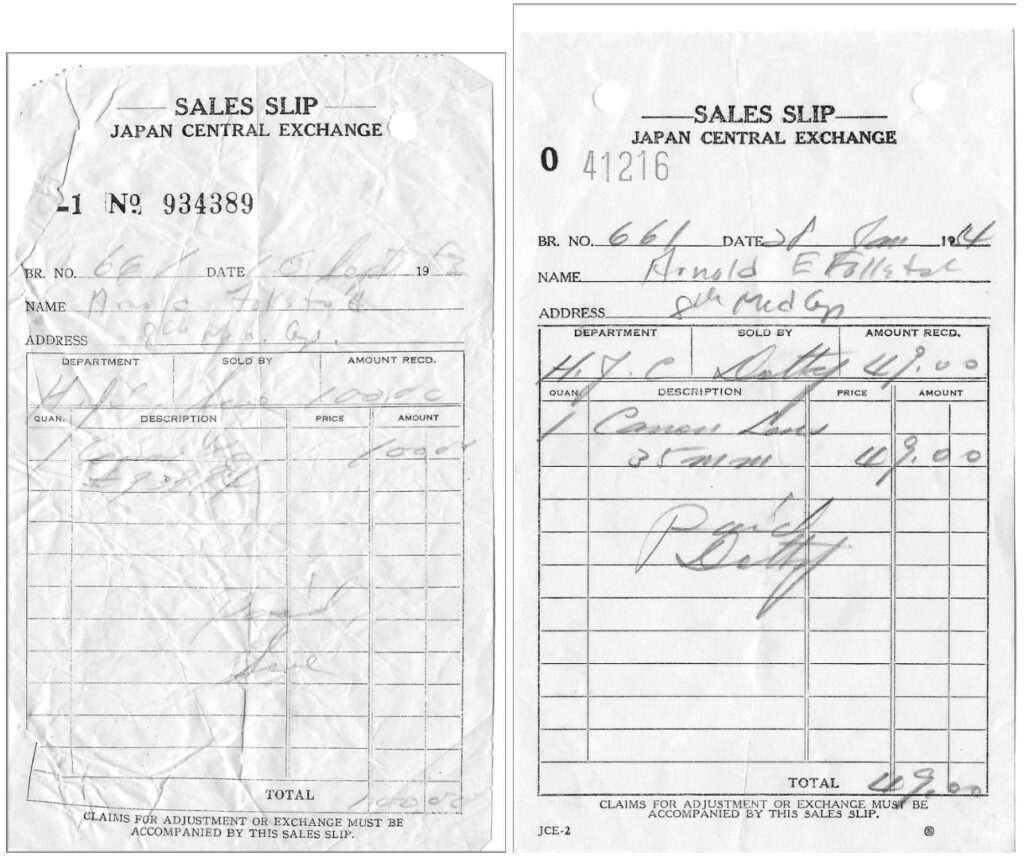 SALES SLIP
JAPAN CENTRAL EXCHANGE
-1 No 934389
BR. NO. 661 DATE 19
NAME Arnold
ADDRESS 8th Med. Gp.
DEPARTMENT SOLD BY AMOUNT RECD.
100.00
QUAN. DESCRIPTION PRICE AMOUNT
1 100 00
Paid
TOTAL 100.00
CLAIMS FOR ADJUSTMENT OR EXCHANGE MUST BE
ACCOMPANIED BY THIS SALES SLIP.
SALES SLIP
JAPAN CENTRAL EXCHANGE
O 41216
BR. NO. 661 DATE Jan 1954
NAME Arnold E
ADDRESS 8th Med Gp
DEPARTMENT SOLD BY AMOUNT RECD.
49.00
QUAN. DESCRIPTION PRICE AMOUNT
1 Canon Lens
35 mm 49.00
Paid
TOTAL 49.00
CLAIMS FOR ADJUSTMENT OR EXCHANGE MUST BE
ACCOMPANIED BY THIS SALES SLIP.
JCE-2